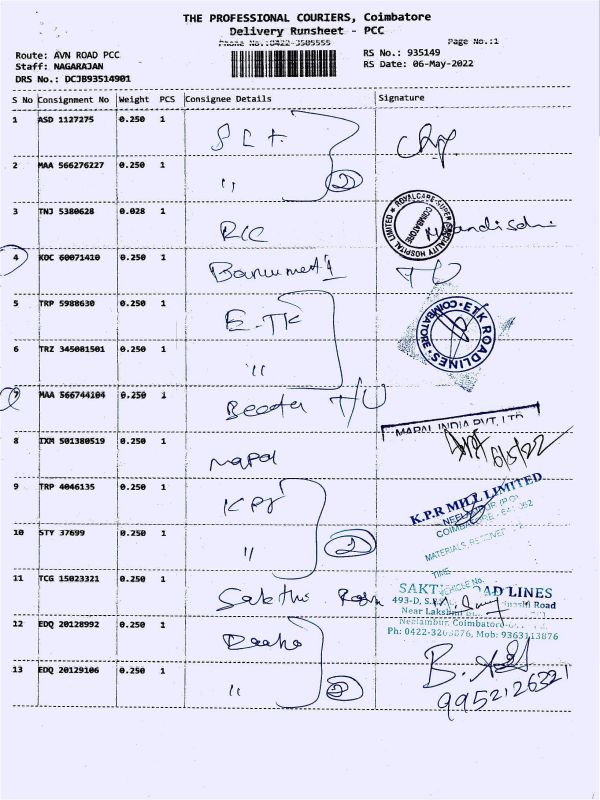 THE PROFESSIONAL COURIERS, Coimbatore
Delivery Runsheet - PCC
Phone No.:0422-3505555
Page No.:1
Route: AVN ROAD PCC
Staff: NAGARAJAN
DRS No.: DCJB93514901
RS No.: 935149
RS Date: 06-May-2022
S No Consignment No Weight PCS Consignee Details Signature
1 ASD 1127275 0.250 1
2 MAA 566276227 0.250 1 " 2
3 TNJ 5380628 0.028 1
ROYALCARE SUPER SPECIALITY HOSPITAL LIMITED COIMBATORE
4 KOC 60071410 0.250 1
5 TRP 5988630 0.250 1 E-TK
ETK ROADLINES COIMBATORE
6 TRZ 345081501 0.250 1 "
7 MAA 566744104 0.250 1
MAPAL INDIA PVT. LTD
8 IXM 501380519 0.250 1 mapal
6/5/22
9 TRP 4046135 0.250 1 KPR
K.P.R MILL LIMITED
NEELAMBUR (PO)
COIMBATORE - 641 062
MATERIALS RECEIVED
TIME
VEHICLE No.
10 STY 37699 0.250 1 " 2
11 TCG 15023321 0.250 1 Sakthi
SAKTHI ROAD LINES
493-D, Road
Near Lakshmi
Neelambur, Coimbatore
Ph: 0422- Mob: 9363113876
12 EDQ 20128992 0.250 1
13 EDQ 20129106 0.250 1 " 2
9952126321